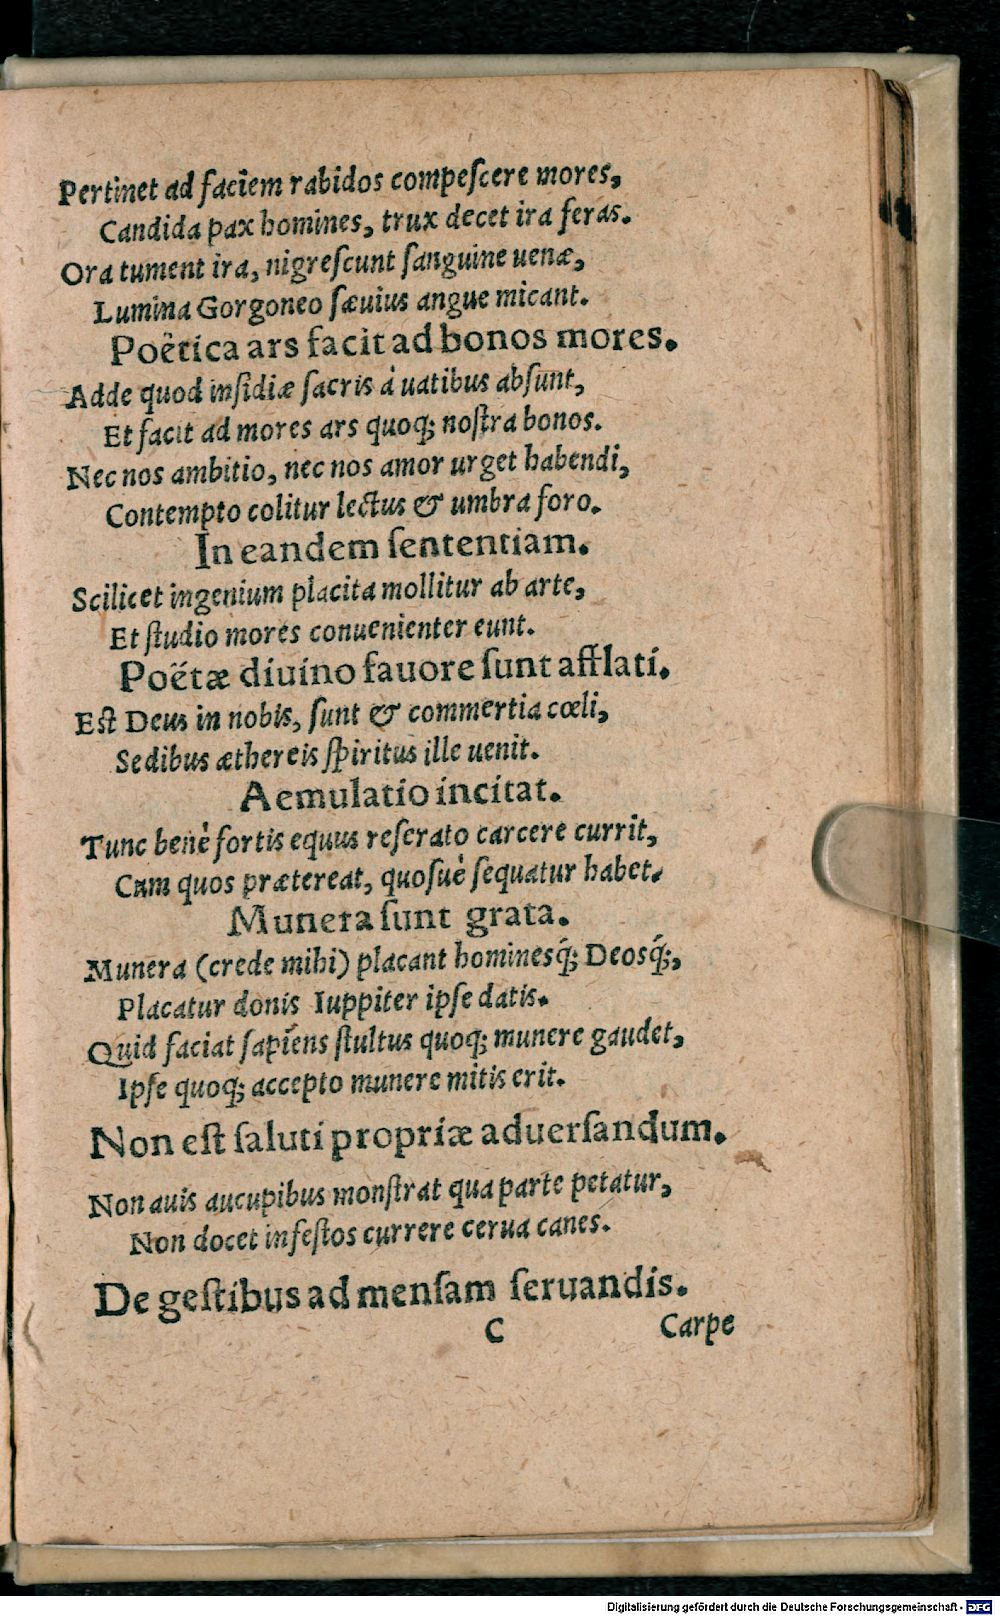 Pertinet ad faciem rabidos compeſcere mores,
Candida pax homines, trux decet ira feras.
Ora tument ira, nigreſcunt ſanguine uenæ,
Lumina Gorgoneo ſæuius angue micant.
Poëtica ars facit ad bonos mores.
Adde quod inſidiæ ſacris à uatibus abſunt,
Et facit ad mores ars quoq; noſtra bonos.
Nec nos ambitio, nec nos amor urget habendi,
Contempto colitur lectus & umbra foro.
In eandem ſententiam.
Scilicet ingenium placita mollitur ab arte,
Et ſtudio mores conuenienter eunt.
Poëtæ diuino fauore ſunt afflati.
Eſt Deus in nobis, ſunt & commertia cœli,
Sedibus æthereis ſpiritus ille uenit.
Aemulatio incitat.
Tunc benè fortis equus reſerato carcere currit,
Cum quos prætereat, quoſuè ſequatur habet.
Munera ſunt grata.
Munera (crede mihi) placant hominesq́; Deosq́;,
Placatur donis Iuppiter ipſe datis.
Quid faciat ſapiens ſtultus quoq; munere gaudet,
Ipſe quoq; accepto munere mitis erit.
Non eſt ſaluti propriæ aduerſandum.
Non auis aucupibus monſtrat qua parte petatur,
Non docet infeſtos currere cerua canes.
De geſtibus ad menſam ſeruandis.
C Carpe
Digitalisierung gefördert durch die Deutsche Forschungsgemeinschaft - DFG